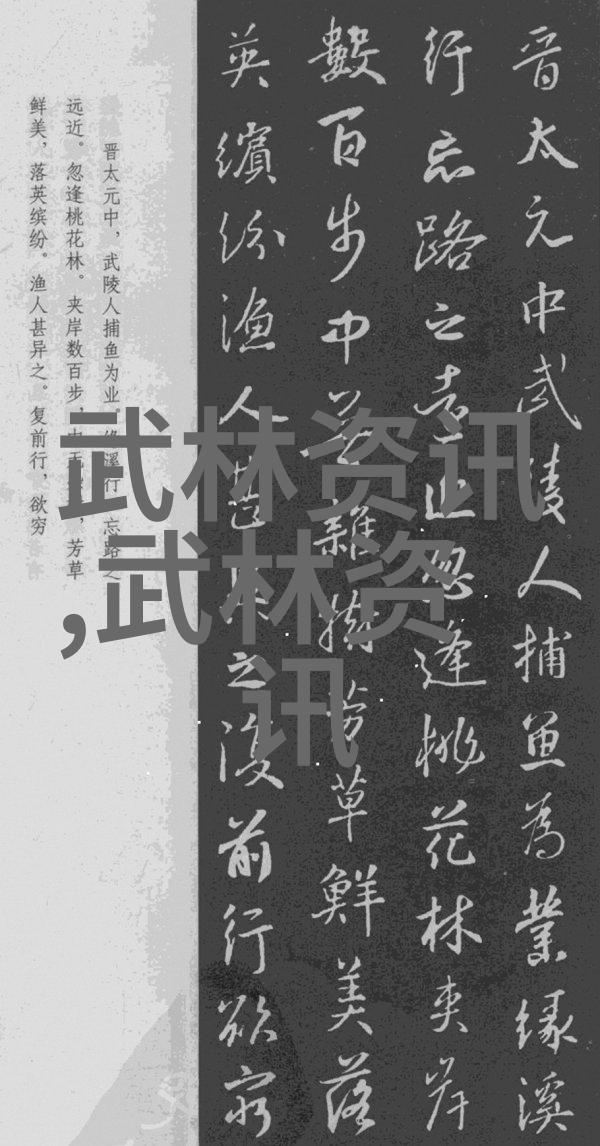 晋太元中武陵人捕鱼为業缘溪
行忘路之遠近忽逢桃花林夹岸
數百步中无雜樹芳草鮮美落
英繽纷渔人甚异之復前行欲穷
晋太元中，武陵人捕鱼为业。缘溪行，忘路之
远近。忽逢桃花林。夹岸数百步，中无杂，芳草
鲜美，落英缤纷。渔人甚异之。复前行，欲穷
武林资讯
,武林资
讯